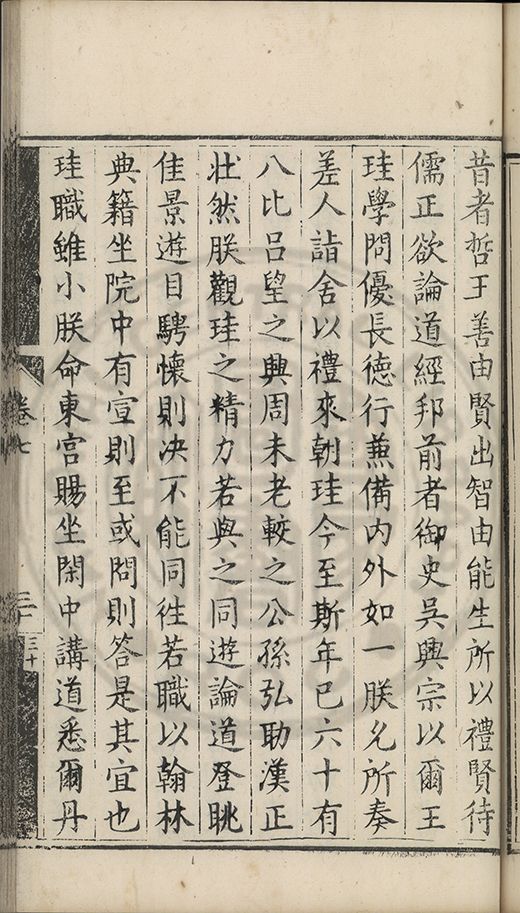 昔者哲王善由賢出智由能生所以禮賢待
儒正欲論道經邦前者御史吳興宗以爾王
珪學問優長徳行兼備内外如一朕允所奏
差人詣舍以禮來朝珪今至斯年已六十有
八比吕望之興周未老較之公孫弘助漢正
壮然朕觀珪之精力若與之同遊論道登眺
佳景遊目騁懷則决不能同徃若職以翰林
典籍坐院中有宣則至或問則答是其宜也
珪職雖小朕命東宫賜坐閑中講道悉爾丹
卷七
三十